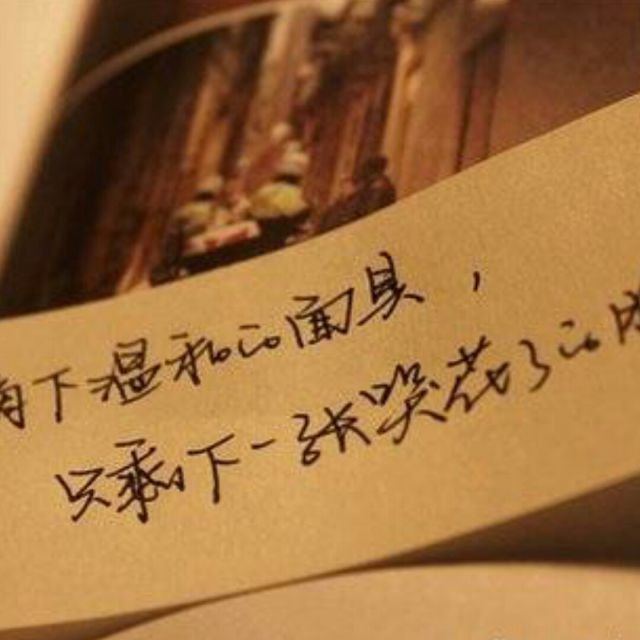 下温和的面具，
只剩下一张哭花了的